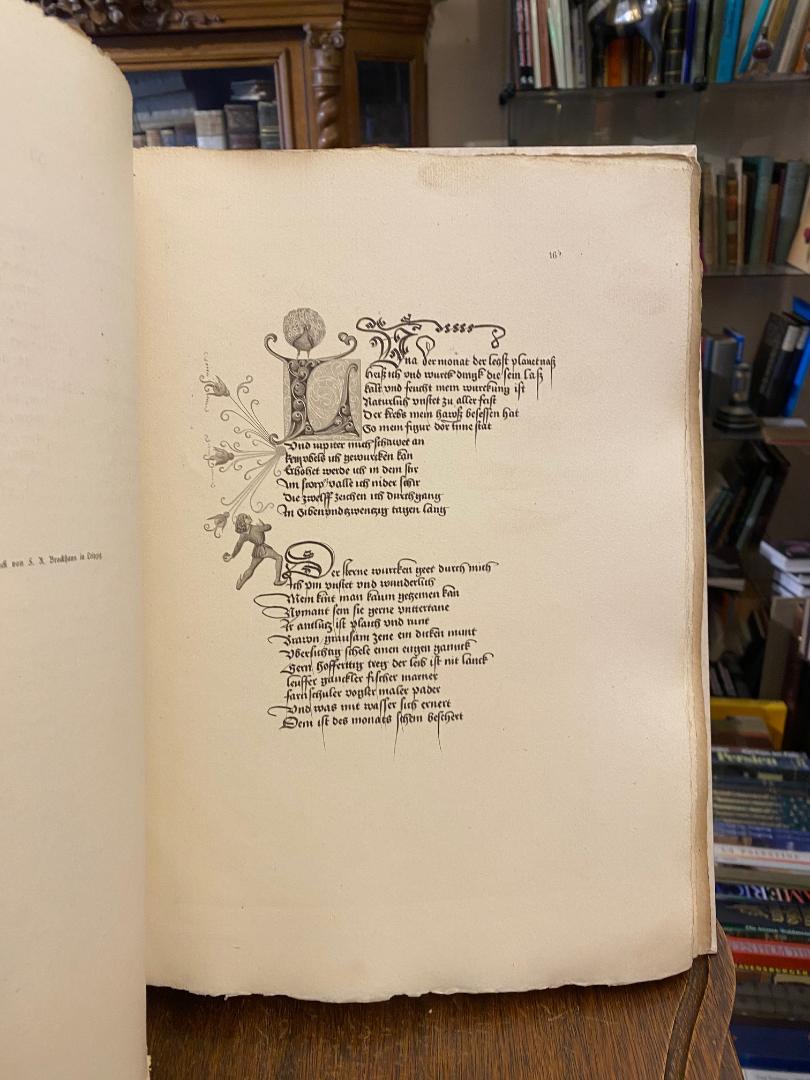 ck von F. A. Brockhaus in Leipzig.
16ᵇ
LUna der monat der letzst planet naß
Heiß ich vnd wurck dingk die sein laß
kalt vnd feucht mein wurckung ist
Naturlich vnstet zu aller frist
Der krebs mein hawß besessen hat
So mein figur dor inne stat
Vnd iupiter mich schawet an
kein vbels ich gewurcken kan
Erhohet werde ich in dem stir
Im scorp valle ich nider schir
Die zwelff zeichen ich durchgang
In Siben vnd zwenczig tagen lang
Der sterne wurcken geet durch mich
Ich pin vnstet vnd wunderlich
Mein kint man kaum geczemen kan
Nymant sein sie gerne vnttertane
Ir antlicz ist plaich vnd runt
Prawn grausam zene ein dicken munt
Vbersichtig schele einen engen ganck
Gern hofferttig treg der leib ist nit lanck
leuffer gauckler fischer marner
farnschuler vogler maler pader
Vnd was mit wasser sich ernert
Dem ist des monats schein beschert
Persien
AMERIC
RAVENSBERGER